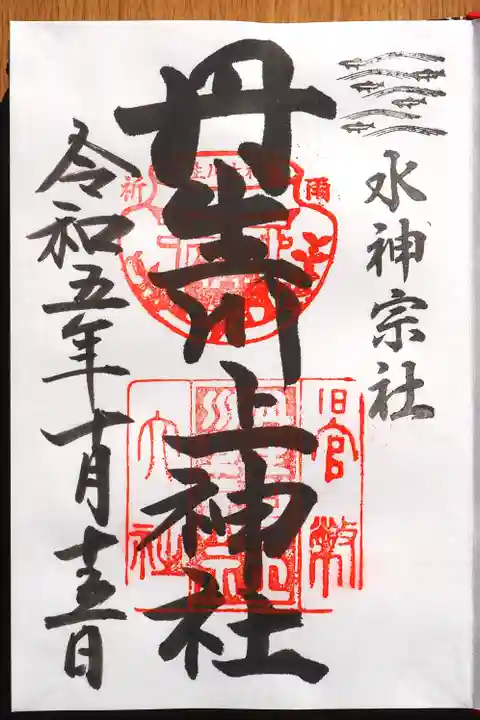 水神宗社
丹生川上神社
令和五年十月十五日
祈
雨
旧官幣
大社